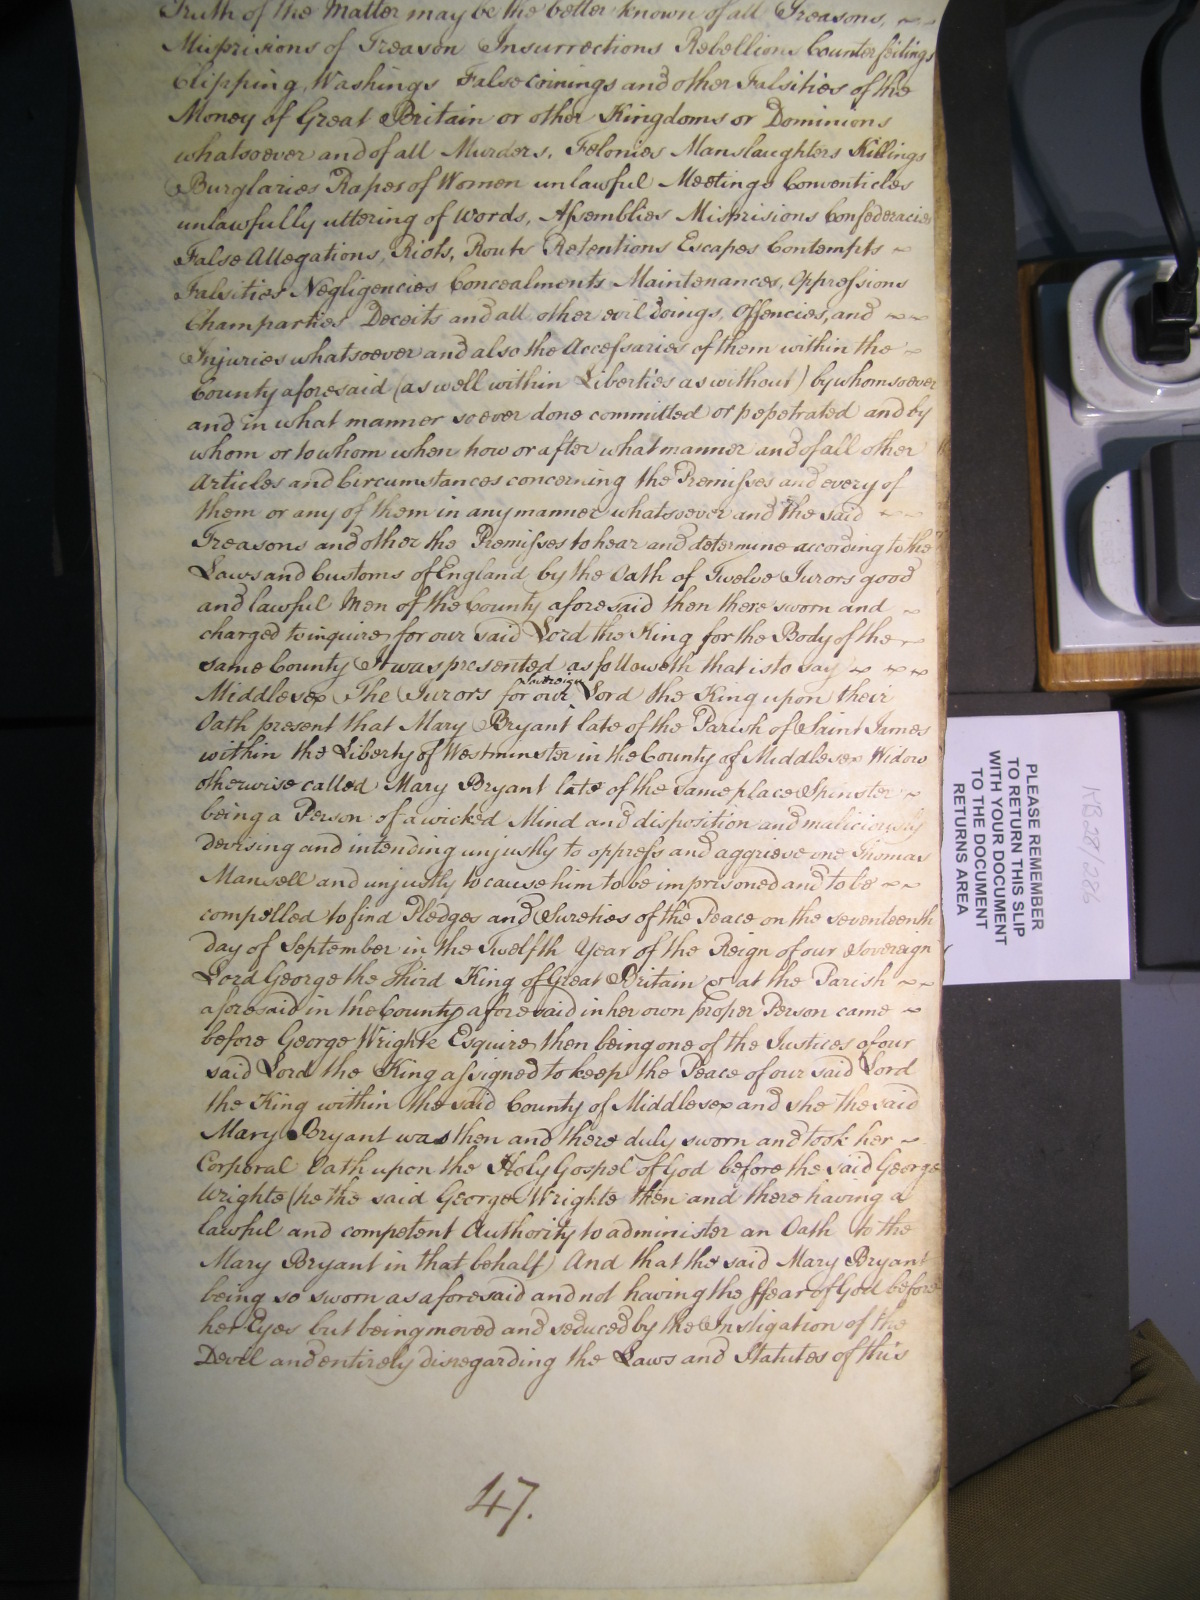 Truth of the Matter may be the better known of all Treasons, ~ ~
Misprisions of Treason Insurrections Rebellions Counterfeitings
Clipping, Washings False coinings and other Falsities of the
Money of Great Britain or other Kingdoms or Dominions
whatsoever and of all Murders, Felonies Manslaughters Killings
Burglaries Rapes of Women unlawful Meetings Conventicles
unlawfully uttering of words, Assemblies Misprisions Confederacies
False Allegations, Riots, Routs Retentions Escapes Contempts ~
Falsities Negligencies Concealments Maintenances, Oppressions
Champarties Deceits and all other evil doings, Offencies, and ~ ~
Injuries whatsoever and also the Accessaries of them within the ~
County aforesaid (as well within Liberties as without) by whomsoever
and in what manner soever done committed or pepetrated and by
whom or to whom when how or after what manner and of all other
Articles and Circumstances concerning the Premisses and every of
them or any of them in any manner whatsoever and the said ~ ~
Treasons and other the Premisses to hear and determine according to the
Laws and Customs of England by the Oath of Twelve Jurors good
and lawful Men of the County aforesaid then there sworn and ~
charged to inquire for our said Lord the King for the Body of the ~
same County It was presented as followeth that is to say ~ ~ ~
Middlesex The Jurors for our sovereign Lord the King upon their
Oath present that Mary Bryant late of the Parish of Saint James
within the Liberty of Westminster in the County of Middlesex Widow
otherwise called Mary Bryant late of the same place Spinster ~
being a Person of a wicked Mind and disposition and maliciously
devising and intending unjustly to oppress and aggrieve one Thomas
Mansell and unjustly to cause him to be imprisoned and to be ~ ~
compelled to find Pledges and Sureties of the Peace on the seventeenth
day of September in the Twelfth Year of the Reign of our Sovereign
Lord George the Third King of Great Britain &c at the Parish ~ ~
aforesaid in the County aforesaid in her own proper Person came ~
before George Wrighte Esquire then being one of the Justices of our
said Lord the King assigned to keep the Peace of our said Lord
the King within the said County of Middlesex and she the said
Mary Bryant was then and there duly sworn and took her ~
Corporal Oath upon the Holy Gospel of God before the said George
Wrighte (he the said George Wrighte then and there having a
lawful and competent Authority to administer an Oath to the
Mary Bryant in that behalf) And that the said Mary Bryant
being so sworn as aforesaid and not having the ffear of God before
her Eyes but being moved and seduced by the Instigation of the
Devil and entirely disregarding the Laws and Statutes of this
47.
PLEASE REMEMBER
TO RETURN THIS SLIP
WITH YOUR DOCUMENT
TO THE DOCUMENT
RETURNS AREA
KB 28/286